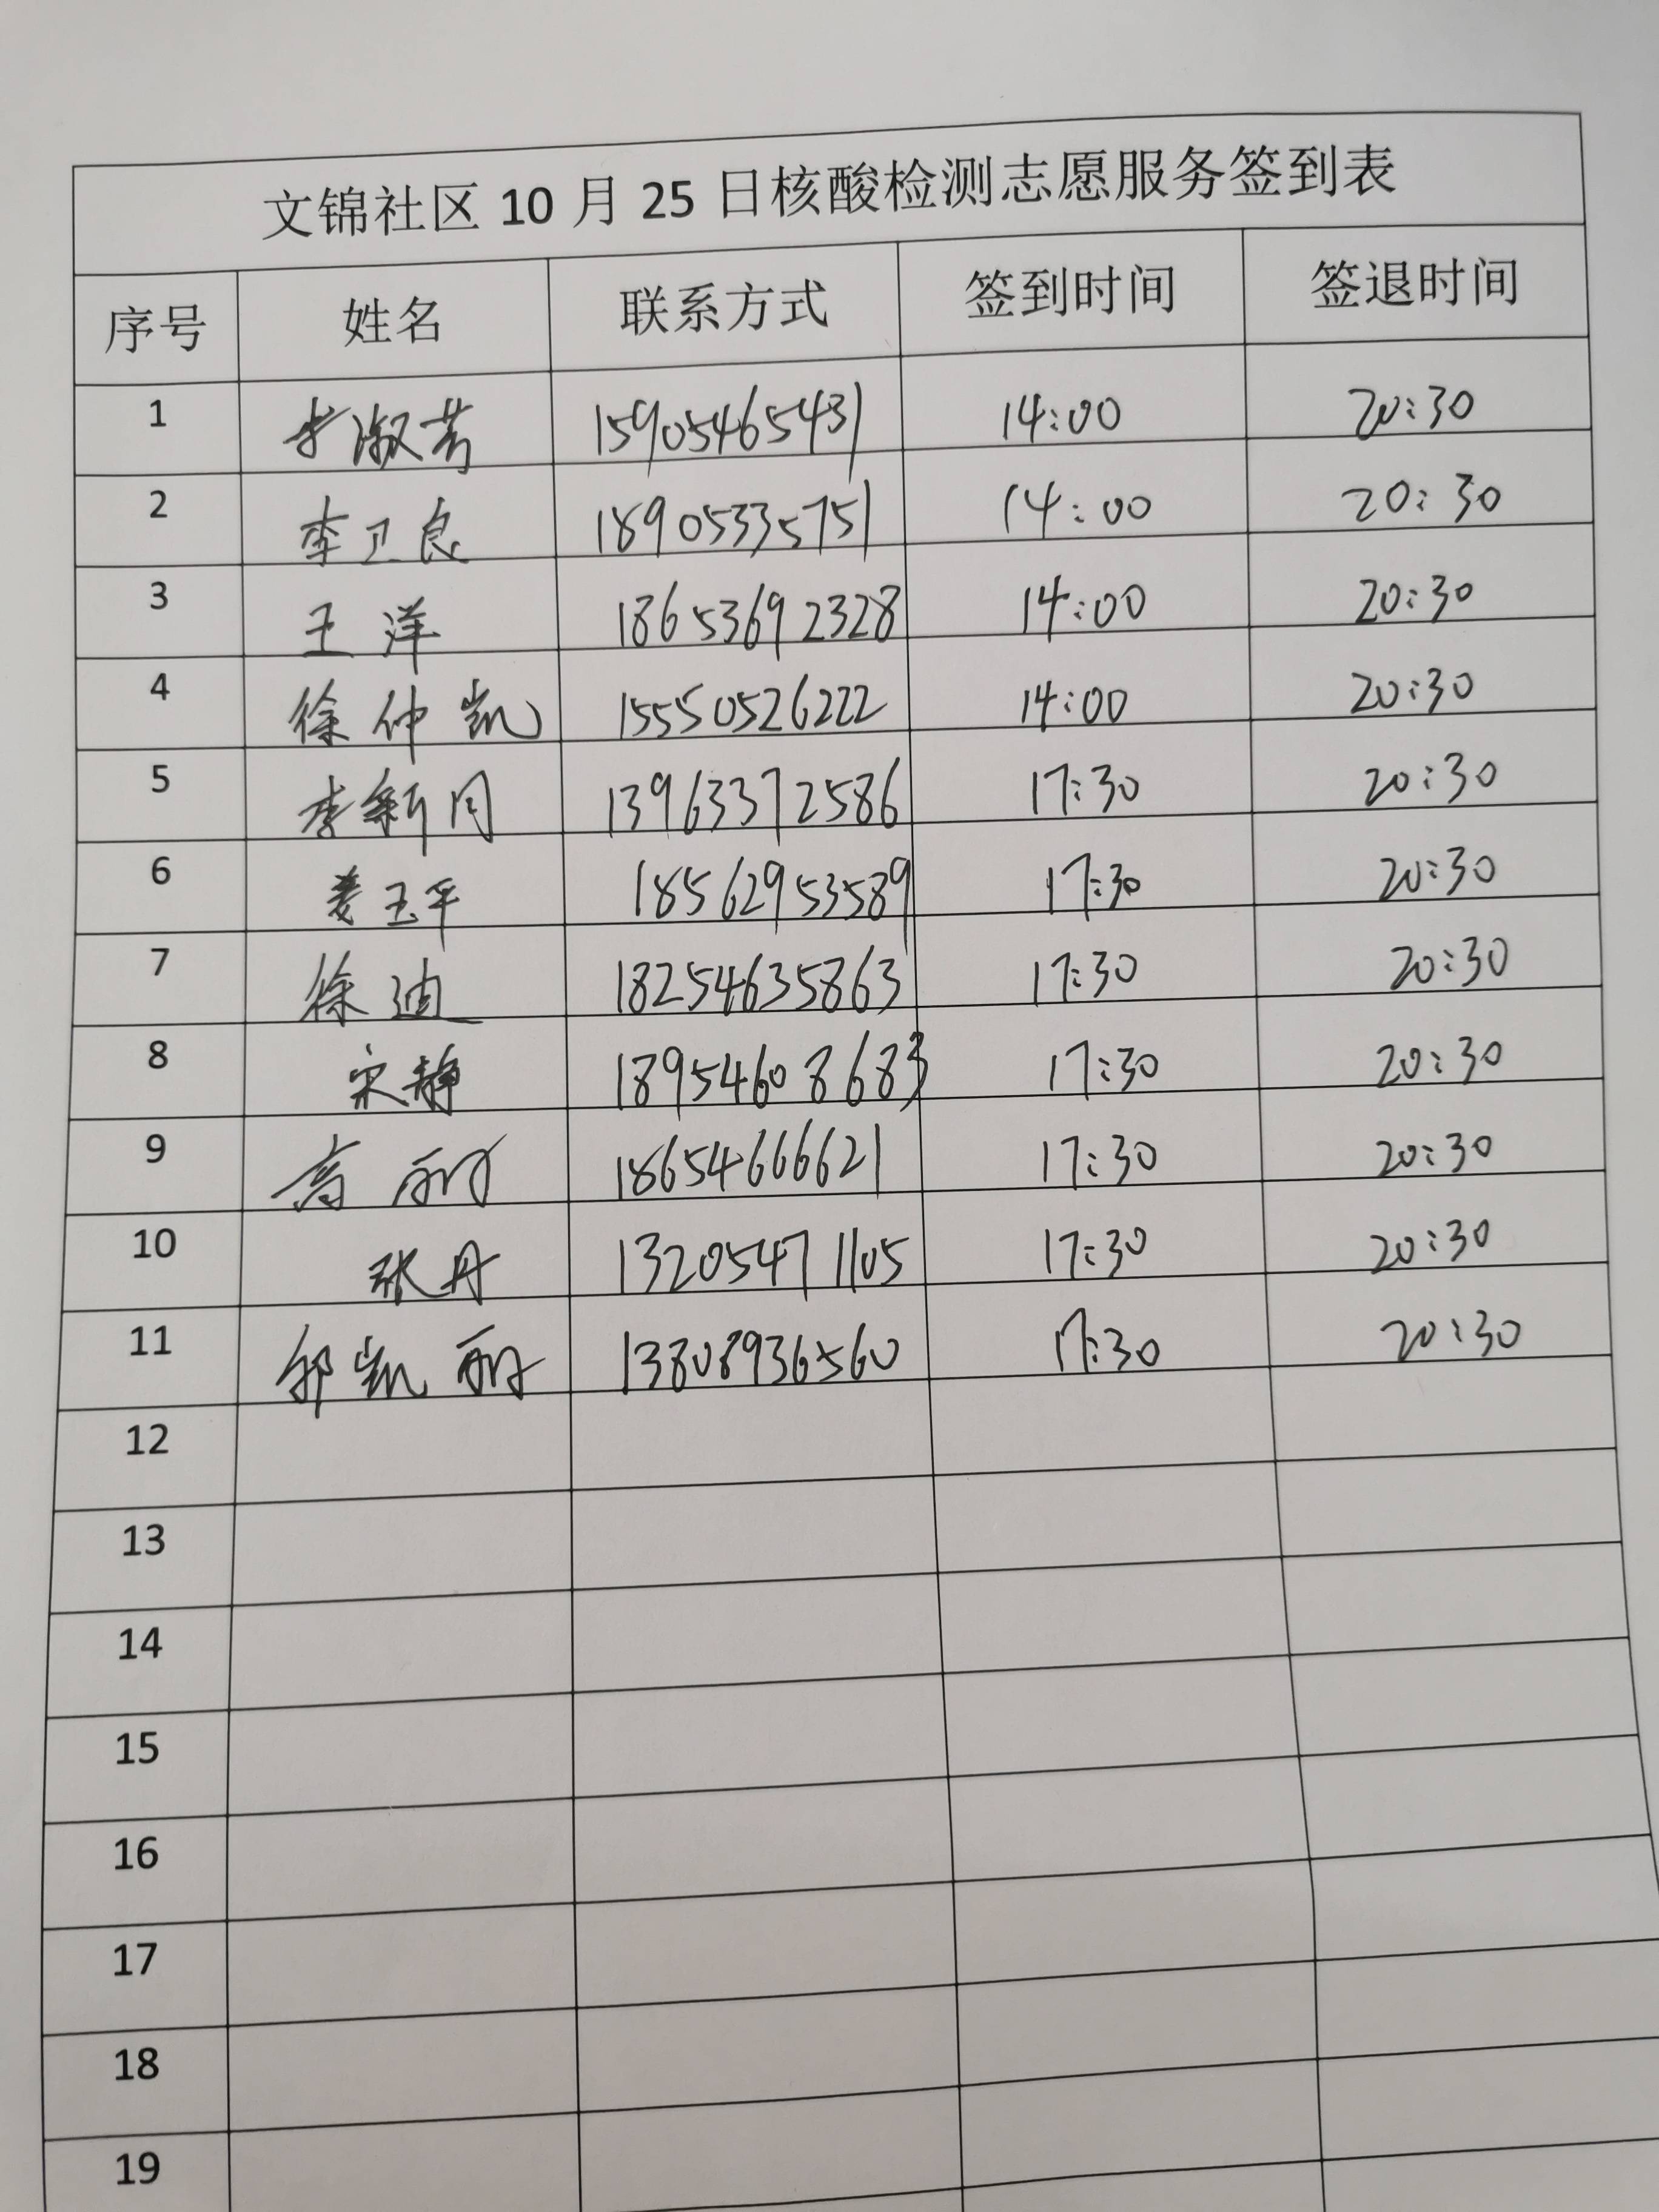 文锦社区 10 月 25 日核酸检测志愿服务签到表
序号 姓名 联系方式 签到时间 签退时间
1 李淑芳 15905465431 14:00 20:30
2 李卫良 18905335751 14:00 20:30
3 王洋 18653692328 14:00 20:30
4 徐仲凯 15550526222 14:00 20:30
5 李新月 13963372586 17:30 20:30
6 姜玉平 18562953589 17:30 20:30
7 徐迪 18254635863 17:30 20:30
8 宋静 18954608683 17:30 20:30
9 高丽 18654666621 17:30 20:30
10 张丹 13205471105 17:30 20:30
11 郭凯丽 13808936560 17:30 20:30
12
13
14
15
16
17
18
19